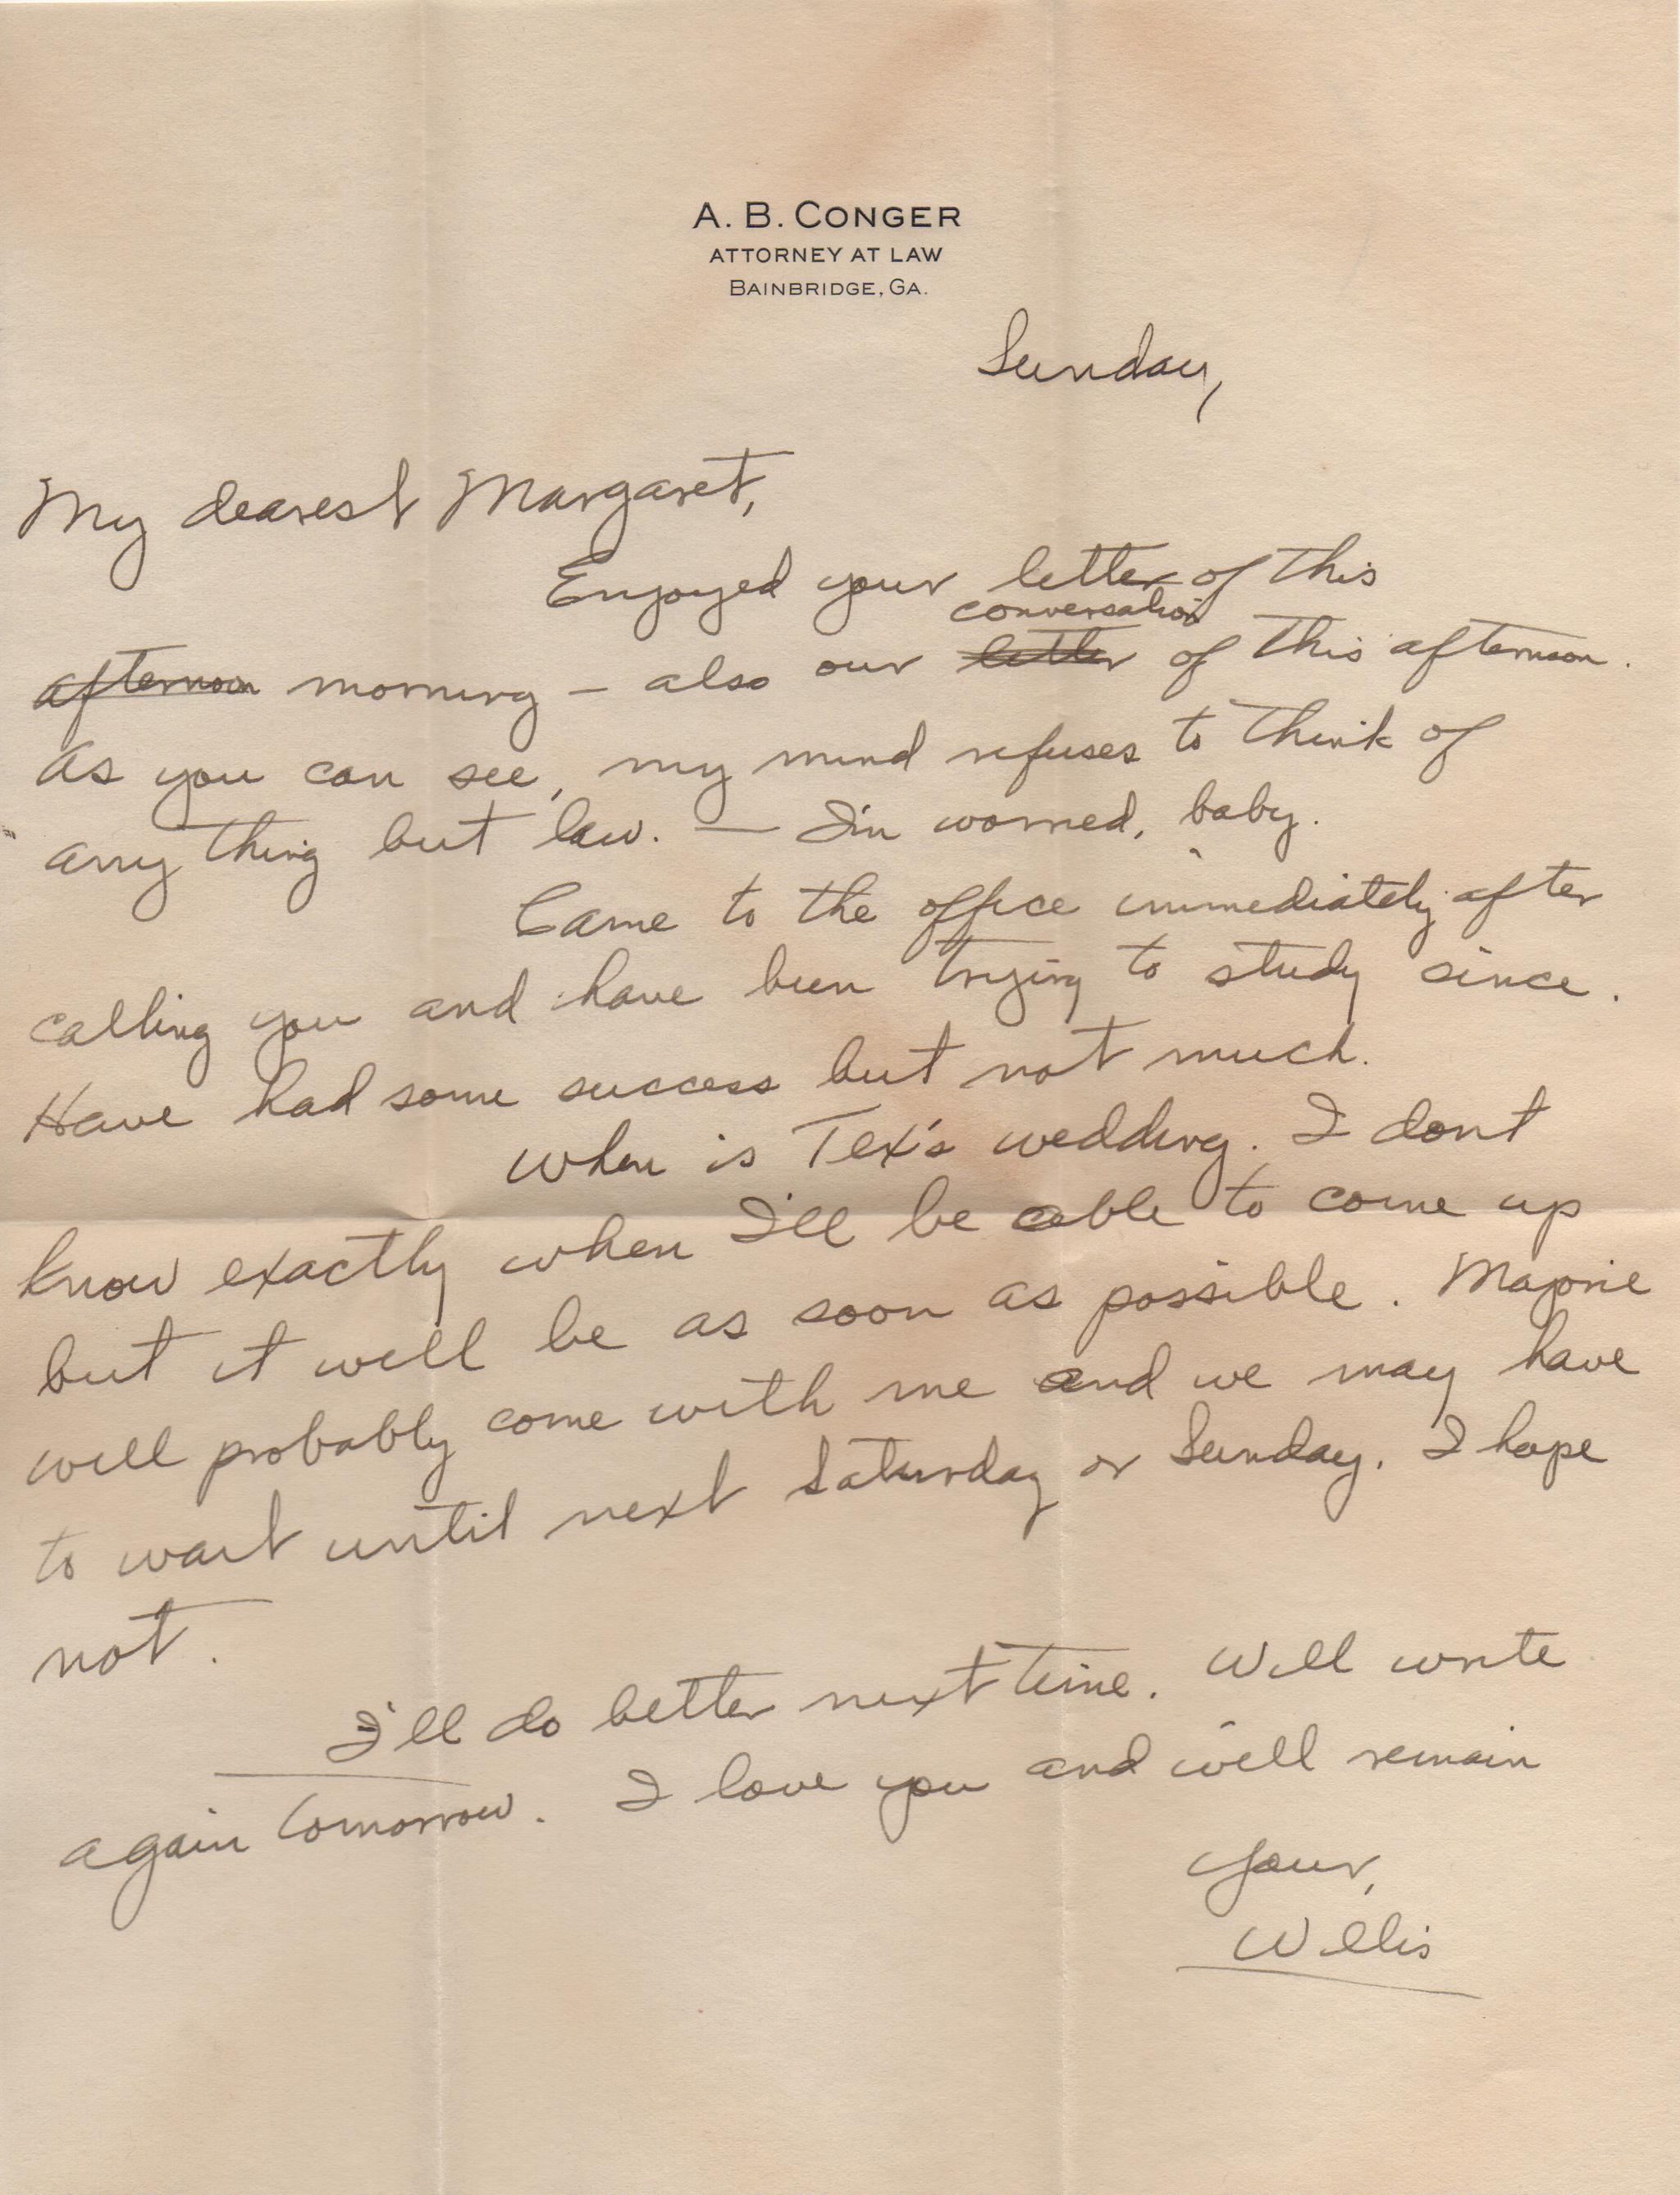 A. B. CONGER
ATTORNEY AT LAW
BAINBRIDGE, GA.
Sunday,
My dearest Margaret,
Enjoyed your letter of this
conversation
afternoon morning - also our letter of this afternoon.
As you can see, my mind refuses to think of
any thing but law. — I'm worried, baby.
Came to the office immediately after
calling you and have been trying to study since.
Have had some success but not much.
When is Tex's wedding. I dont
know exactly when I'll be able to come up
but it will be as soon as possible. Majorie
will probably come with me and we may have
to wait until next Saturday or Sunday. I hope
not.
I'll do better next time. Will write
again tomorrow. I love you and will remain
Your,
Willis